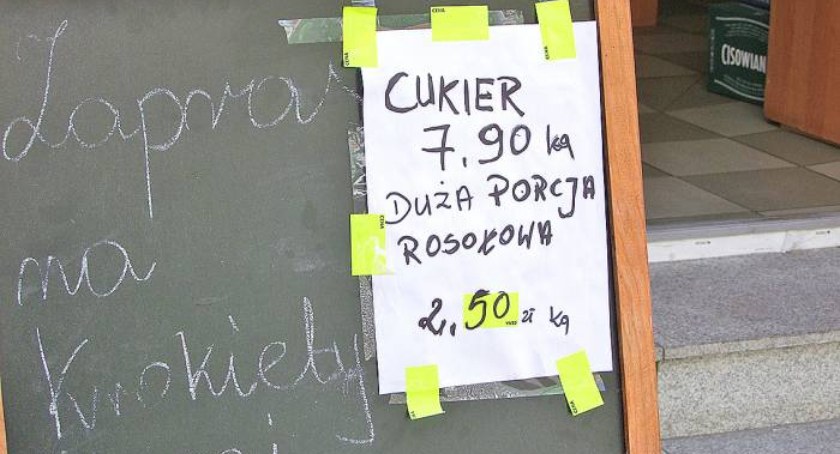 Zapras
na
Krokiety
CUKIER
7.90 kg
DUŻA PORCJA
ROSOŁOWA
2.50 zł kg
CISOWIAN